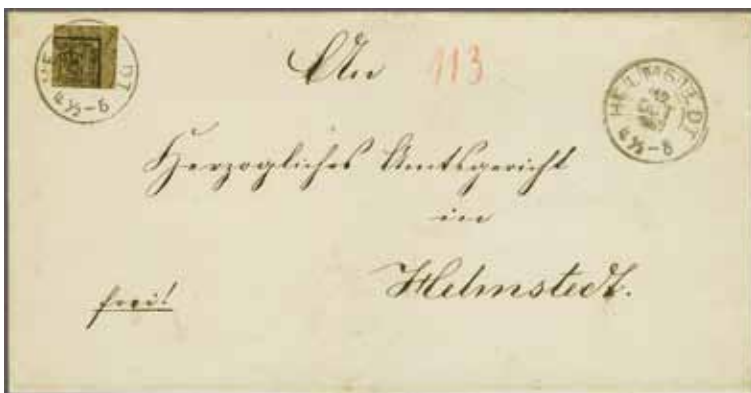 An 113
HELMSTEDT
4½-6
Herzogliches Amtsgericht
in
Helmstedt.
frei!